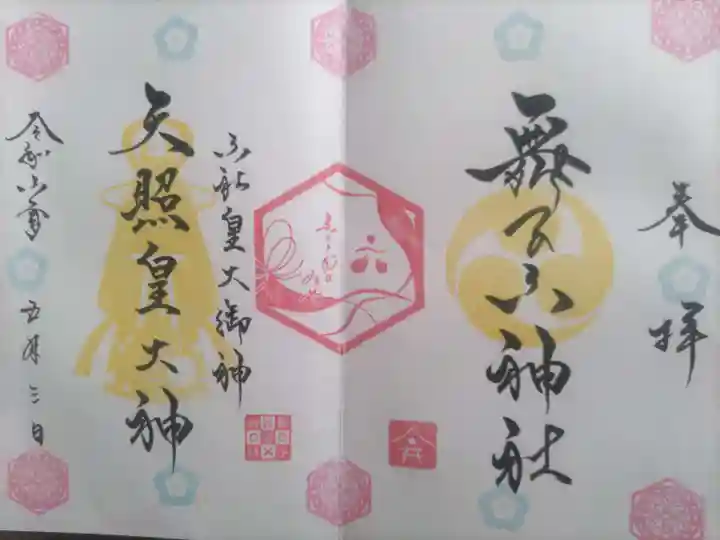 奉拝
舞子六神社
六
六社皇大御神
天照皇大神
令和六年 五月三日